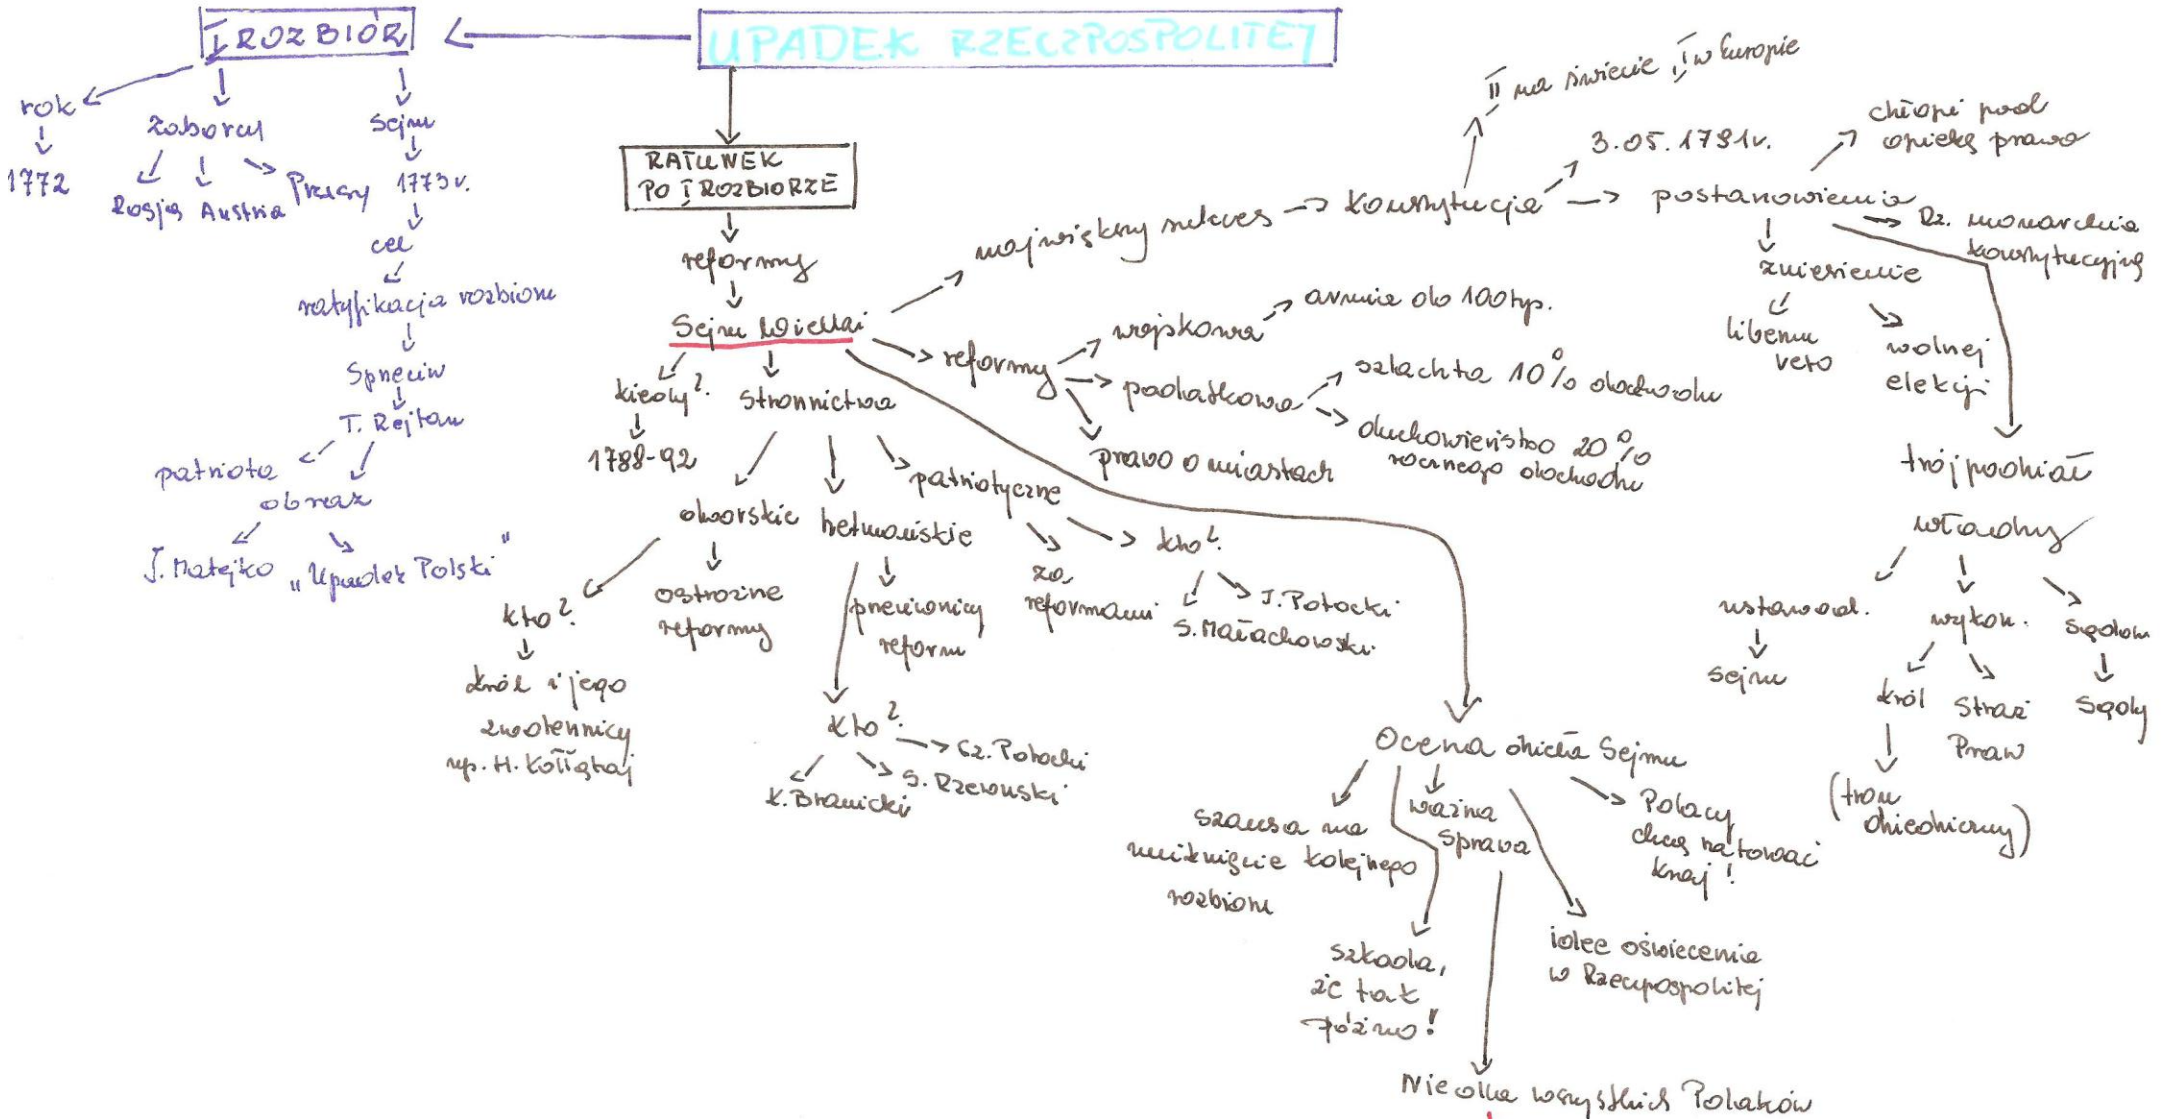 I ROZBIÓR
UPADEK RZECZPOSPOLITEJ
rok
1772
Zaborcy
Rosja
Austria
Prusy
Sejm
1773 r.
cel
ratyfikacja rozbioru
Sprzeciw
T. Rejtan
patriota
obraz
J. Matejko
„Upadek Polski"
RATUNEK
PO I ROZBIORZE
reformy
Sejm Wielki
kiedy?
1788-92
stronnictwa
dworskie
kto?
król i jego
zwolennicy
np. H. Kołłątaj
ostrożne
reformy
hetmańskie
przeciwnicy
reform
kto?
K. Branicki
S. Rzewuski
Sz. Potocki
patriotyczne
za
reformami
kto?
I. Potocki
S. Małachowski
największy sukces
konstytucja
II na świecie, I w Europie
3.05.1791r.
postanowienia
chłopi pod
opieką prawa
Rz. monarchią
konstytucyjną
zniesienie
liberum
veto
wolnej
elekcji
trójpodział
władzy
ustawod.
sejm
wykon.
król
(tron
dziedziczny)
Straż
Praw
sądow
sądy
reformy
wojskowa
armia do 100 tys.
podatkowa
szlachta 10% dochodu
duchowieństwo 20%
rocznego dochodu
prawo o miastach
Ocena dzieła Sejmu
szansa na
uniknięcie kolejnego
rozbioru
szkoda,
że tak
późno!
ważna
sprawa
Nie dla wszystkich Polaków
idee oświecenia
w Rzeczypospolitej
Polacy
chcą ratować
kraj!